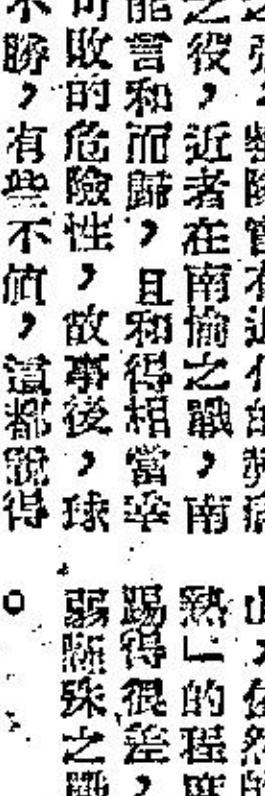 之役，近者在南愉之戰，南
能言和而歸，且和得相當幸
可敗的危險性，故事後，球
不勝，有些不值，這都說得
熱」的程度
踢得很差，
弱隊殊之戰
。